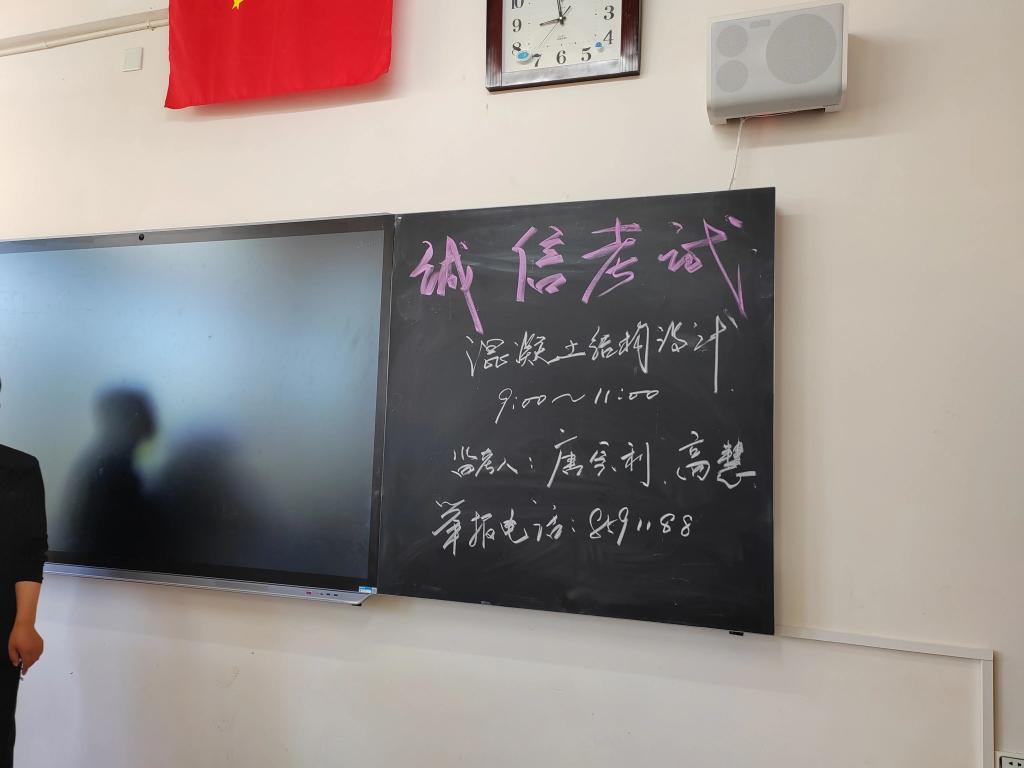 10
9
8
7
6
5
4
3
诚信考试
混凝土结构设计
9:00～11:00
监考人：唐 利、高慧
举报电话：8591188